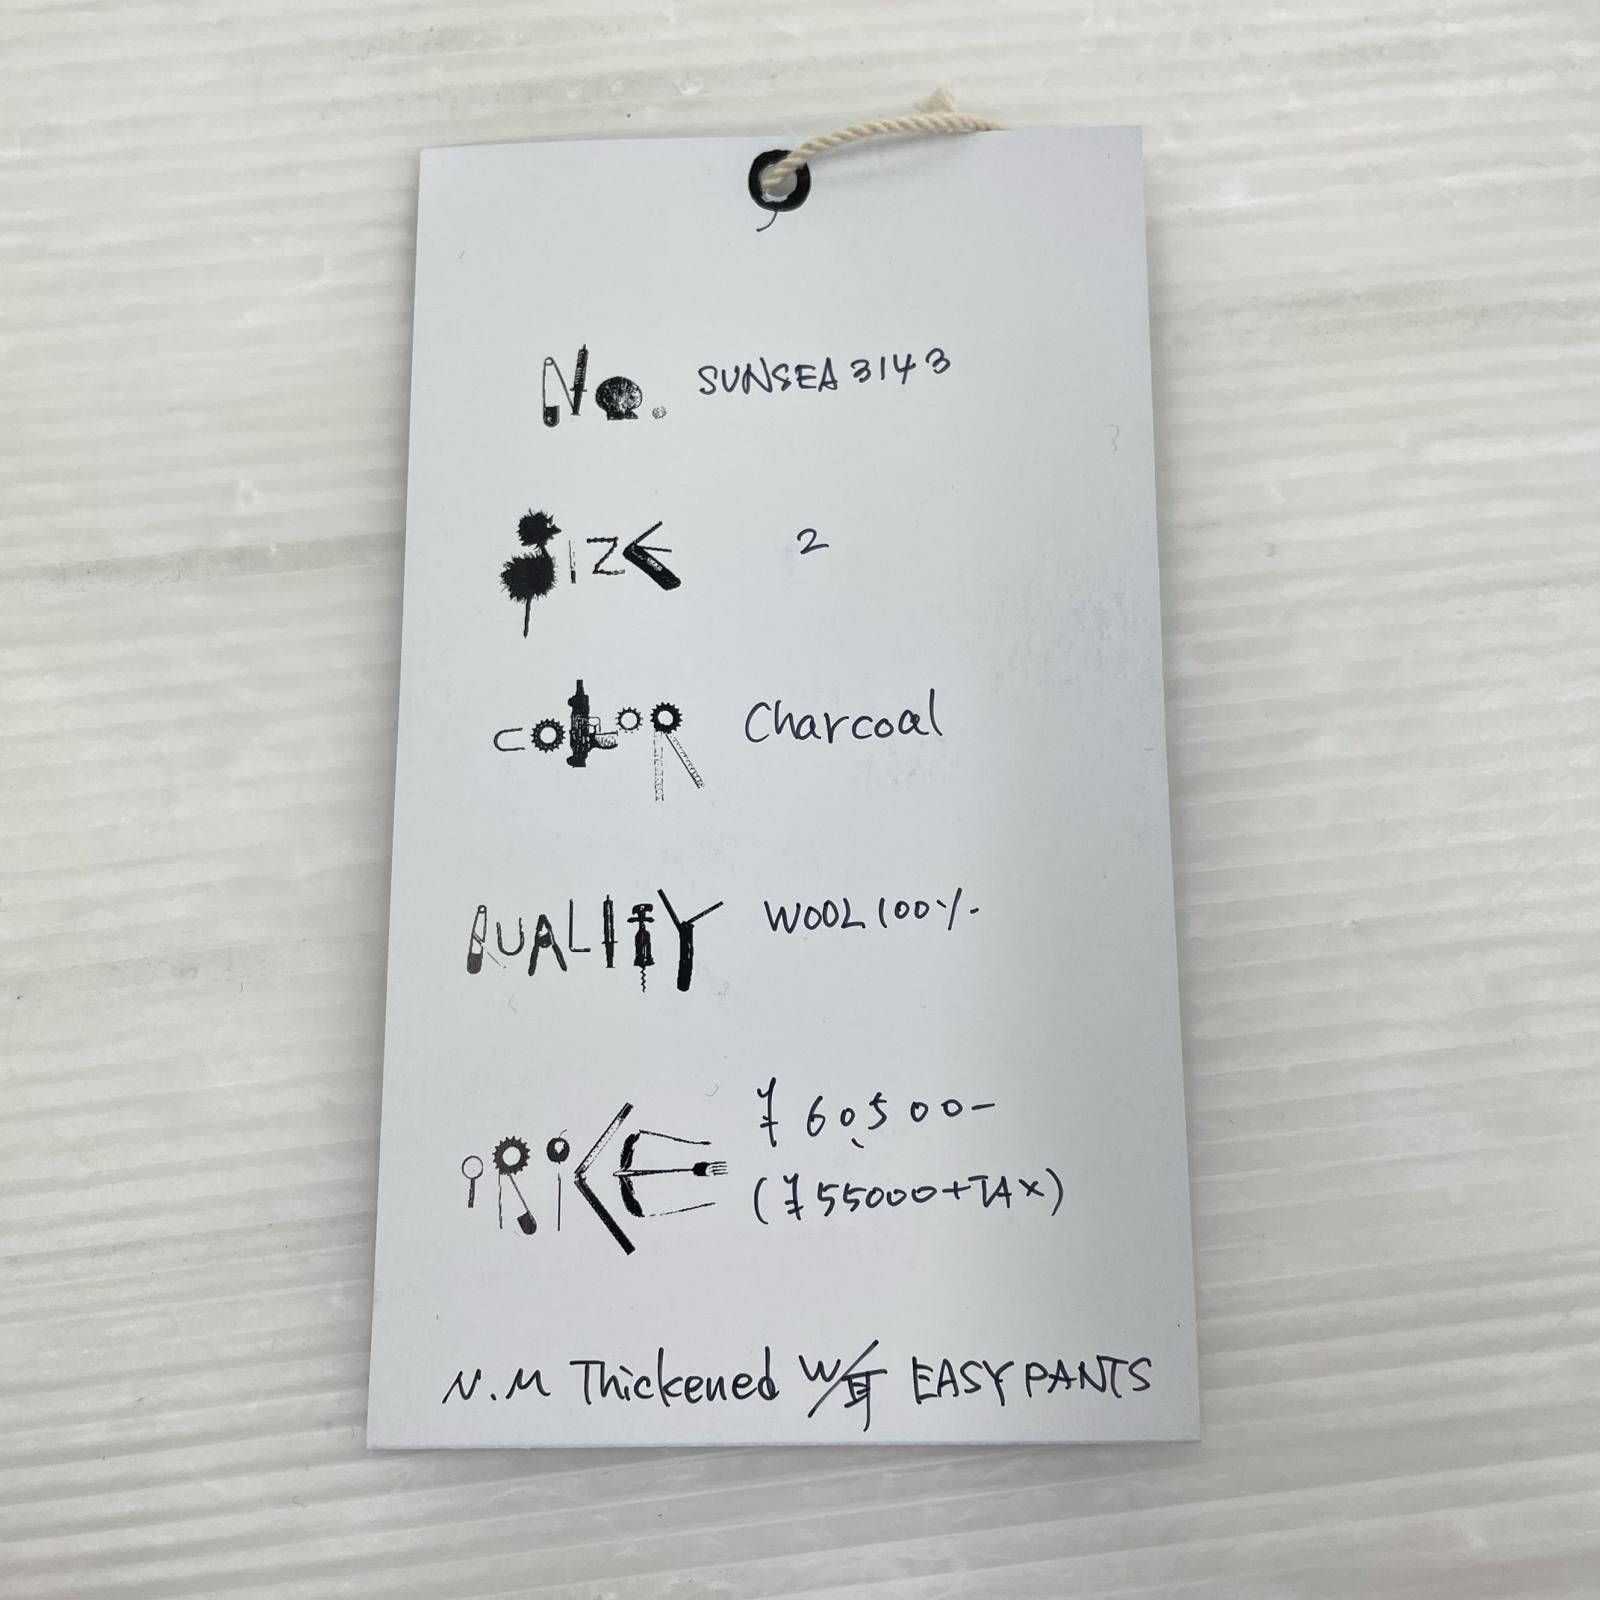 No. SUNSEA 3143
SIZE 2
COLOR Charcoal
QUALITY WOOL 100%
PRICE ¥60,500-
(¥55000+TAX)
N.M Thickened W/耳 EASY PANTS